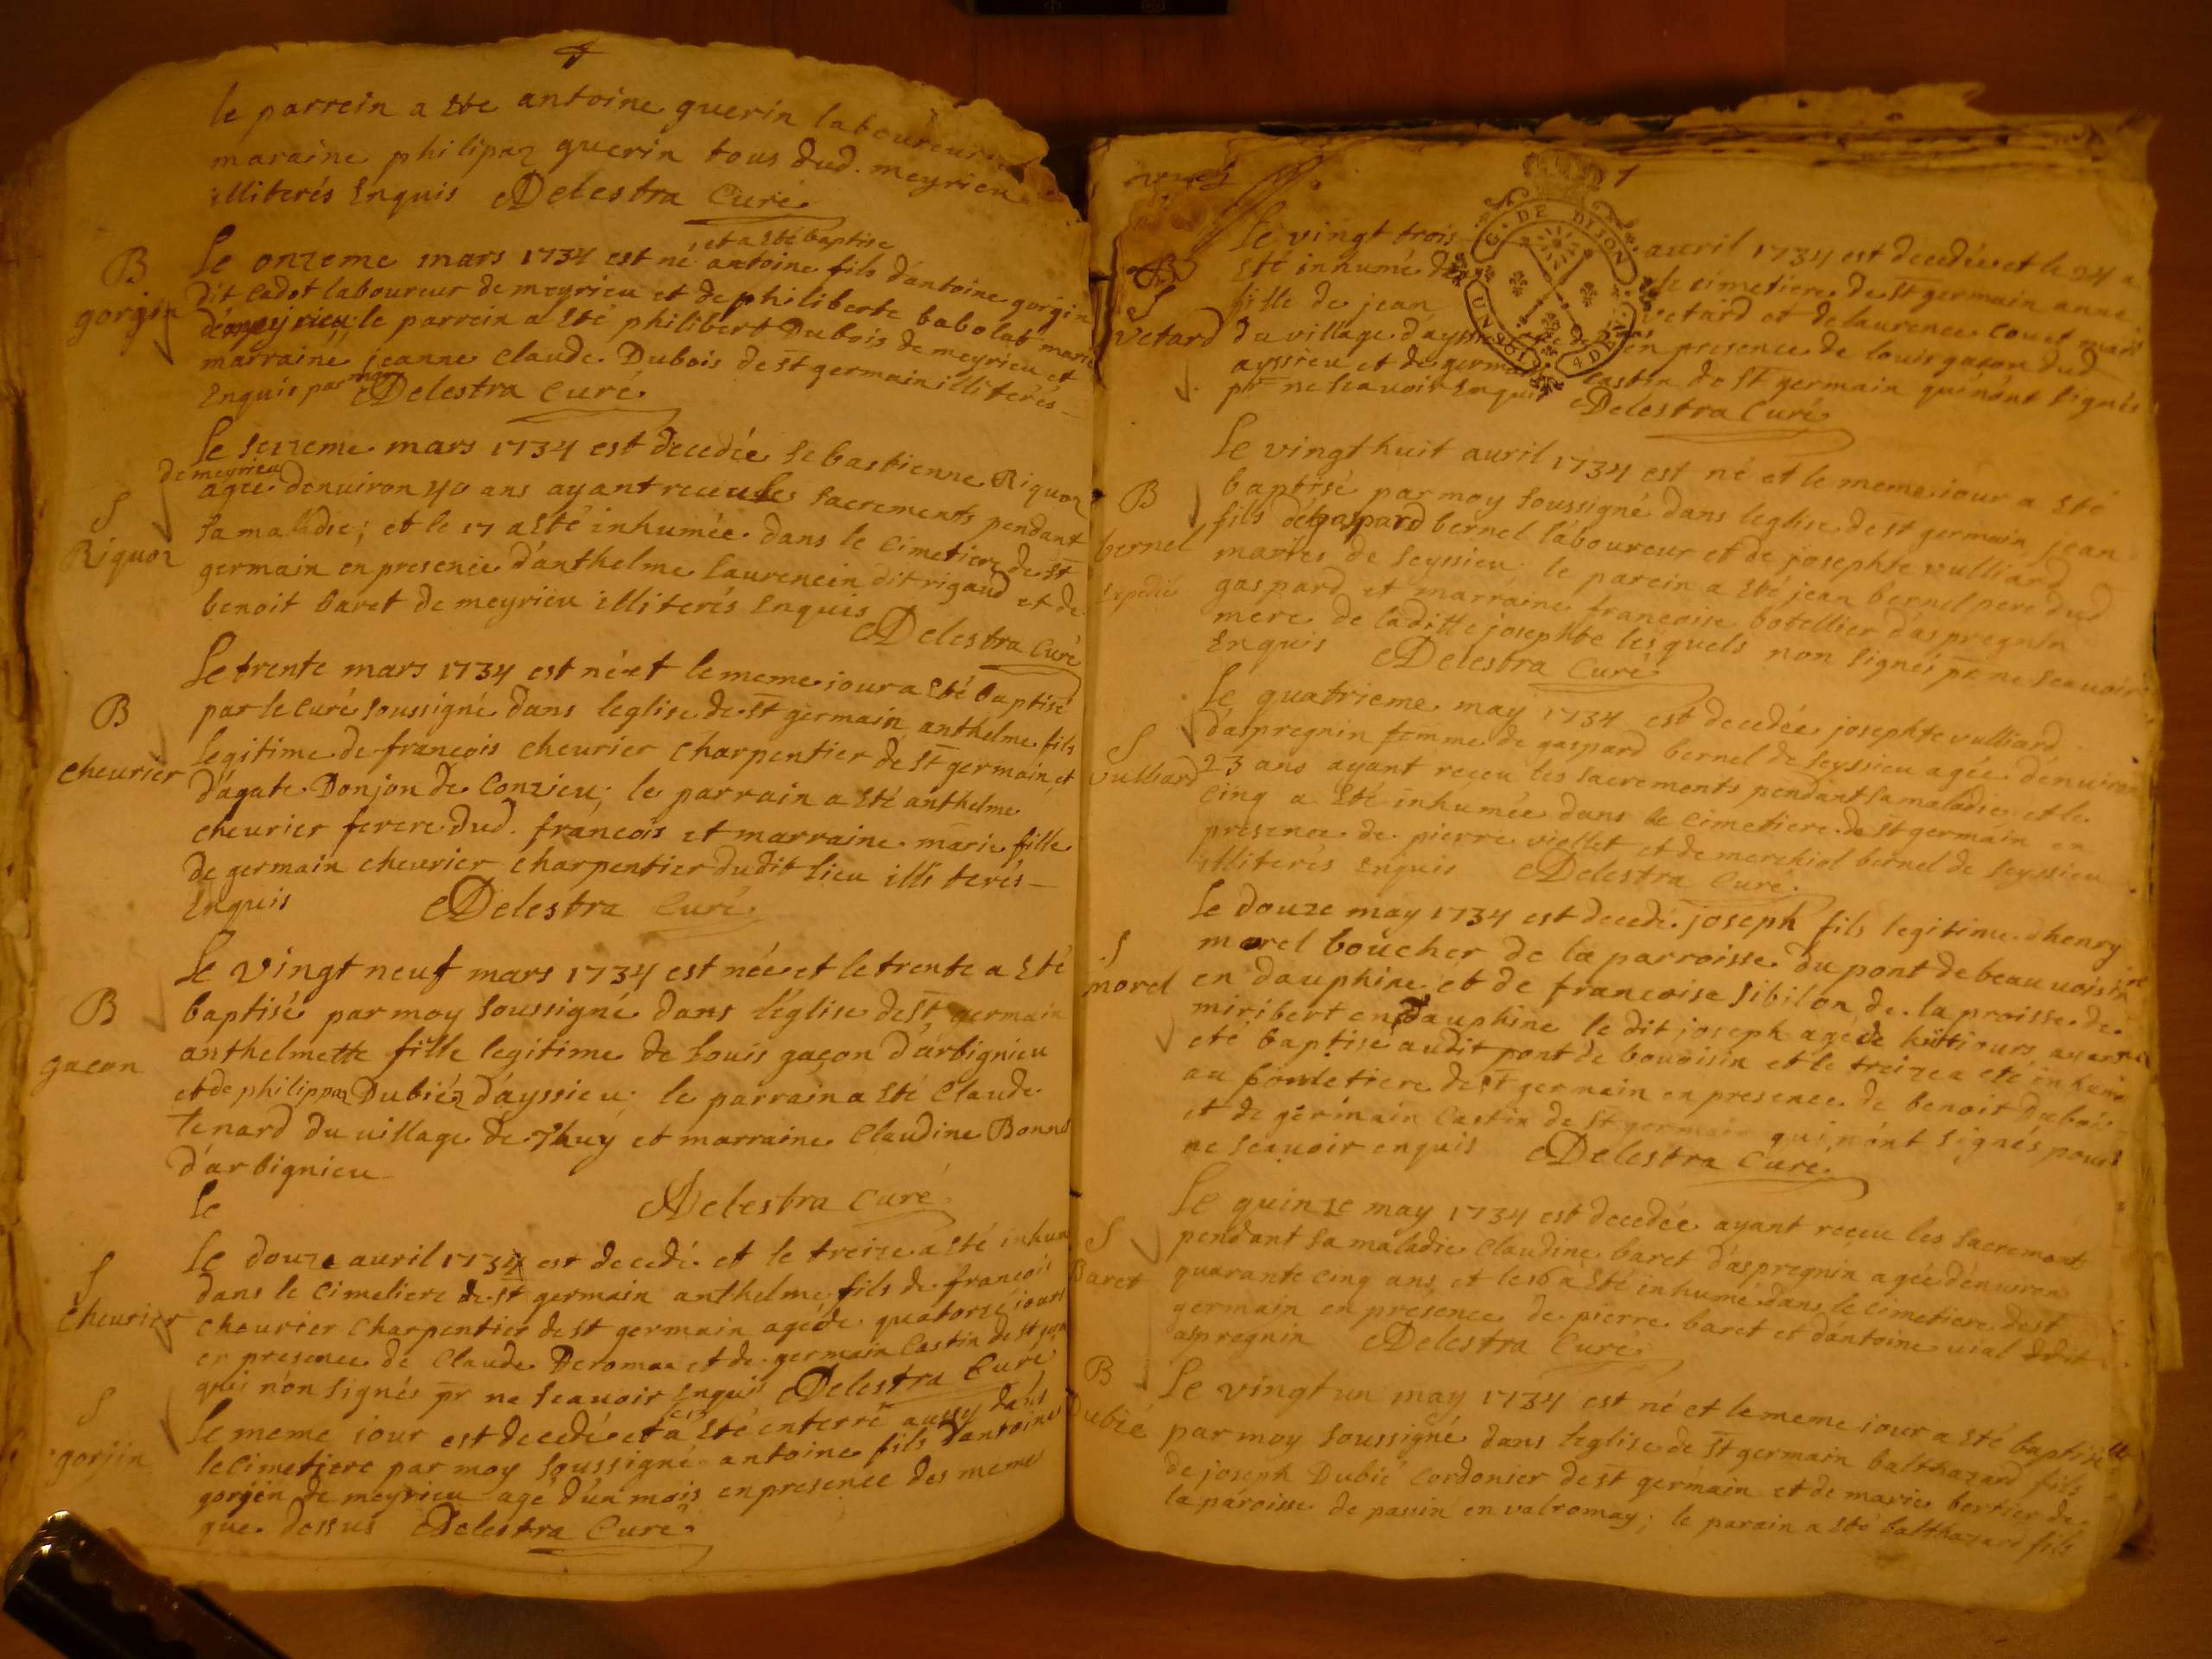 le parrein a Esté antoine guerin laboureur
maraine philipaz guerin tous dud. meyrieu
illiterés Enquis Delestra Curé
et a Esté baptise
B
gorgin
Le onzeme mars 1734 est né antoine fils dantoine gorgin
dit Cadot laboureur de meyrieu et de philiberte babolat
le parrein a Esté philibert Dubois de meyrieu et
marraine jeanne Claude Dubois de st germain illiterés
Enquis par moy Delestra Curé
Le sezeme mars 1734 est decedée Sebastienne Riquoz
de meyrieu
S
Riquoz
agée denuiron 40 ans ayant receu les Sacrements pendant
sa maladie; et le 17 a Esté inhumée dans le Cimetiere de st
germain en presence d'anthelme Laurencin dit rigaud et de
benoit baret de meyrieu illiterés Enquis
Delestra Curé
B
cheurier
Le trente mars 1734 est né et le meme iour a Esté baptisé
par le Curé soussigné dans leglise de st germain anthelme fils
legitime de francois cheurier charpentier de st germain et
d'agate Donjon de Conzieu; le parrain a Esté anthelme
cheurier ferere dud. francois et marraine marie fille
de germain cheurier charpentier dudit lieu illiterés
Enquis Delestra Curé
B
gacon
Le vingt neuf mars 1734 est née et le trente a Esté
baptisé par moy soussigné dans l'église de st germain
anthelmette fille legitime de Louis gaçon d'arbignieu
et de philippaz Dubiéz d'ayssieu; le parrain a Esté Claude
Tenard du uillage de Thuy et marraine Claudine Bonne
d'arbignieu
Le
Delestra Curé
S
cheurier
Le douze auril 1734 est decedé et le treize a Esté inhum
dans le Cimetiere de st germain anthelme fils de francois
cheurier Charpentier de st germain agé de quatorze iours
en presence de Claude Deromaa et de germain Castin de st germ
qui n'on signés pr ne scauoir Enquis Delestra Curé
S
gorjin
Le meme iour est decedé et a Esté enterré aussy dans
le Cimetiere par moy soussigné antoine fils dantoine
gorgin de meyrieu agé d'un mois en presence des meme
que dessus Delestra Curé
S
Vetard
Le vingt trois auril 1734 est decedée et le 24 a
Esté inhumé le cimetiere de st germain anne
fille de jean vetard et de laurence Couet
du village d'ayssieu en presence de louis gaçon dud
ayssieu et de germain Castin de st germain qui n'ont signés
pr ne scauoir Enquis Delestra Curé
B
bernel
Expedié
Le vingt huit auril 1734 est né et le meme iour a Esté
baptisé par moy soussigné dans leglise de st germain jean
fils de gaspard bernel laboureur et de josephte vulliard
mariés de seyssieu; le parein a Esté jean bernel pere dud
gaspard et marraine francoise botellier d'aspregnin
mere de laditte josephte lesquels non signés pr ne scauoir
Enquis Delestra Curé
S
vulliard
Le quatrieme may 1734 est decedée josephte vulliard
d'aspregnin femme de gaspard bernel de seyssieu agée d'enuiron
23 ans ayant receu les sacrements pendant sa maladie et le
cinq a Esté inhumée dans le cimetiere de st germain en
presence de pierre viollet et de merchiol bernel de seyssieu
illiterés Enquis Delestra Curé
S
morel
Le douze may 1734 est decedé joseph fils legitime d'henry
morel boucher de la parroisse du pont de beauuoisin
en dauphine et de francoise sibilon de la proisse de
miribert en dauphine le dit joseph agé de huit iours ayant
eté baptisé audit pont de bouoisin et le treize a eté inhumé
au cimetiere de st germain en presence de benoit Dubois
et de germain Castin de st germain qui n'ont signés pour
ne scauoir enquis Delestra Curé
S
Baret
Le quinze may 1734 est decedée ayant receu les sacrement
pendant sa maladie Claudine baret d'aspregnin agée d'enuiron
quarante cinq ans, et le 16 a Esté inhumé dans le cimetiere de st
germain en presence de pierre baret et d'antoine uial
aspregnin Delestra Curé
B
Dubié
Le vingt un may 1734 est né et le meme iour a Esté baptisé
par moy soussigné dans leglise de st germain balthazard fils
de joseph Dubié Cordonier de st germain et de marie bertier de
la paroisse de passin en valromay; le parain a Esté balthazard fils